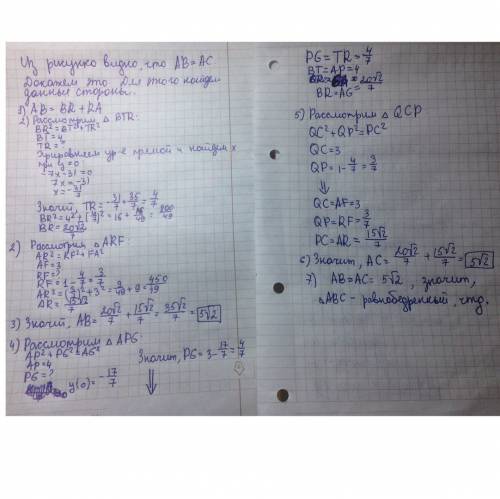 Из рисунка видно, что AB = AC
Докажем это. Для этого найдем
данные стороны.
1) AB = BR + RA
2) Рассмотрим △ BTR:
BR² = BT² + TR²
BT = 4
TR = ?
ур-е прямой и найдем x
при y = 0
-7x - 31 = 0
7x = -31
x = -31/7
Значит, TR = -31/7 + 35/7 = 4/7
BR² = 4² + (4/7)² = 16 + 16/49 = 800/49
BR = 20√2/7
2) Рассмотрим △ ARF:
AR² = RF² + FA²
AF = 3
RF = ?
RF = 1 - 4/7 = 3/7
AR² = (3/7)² + 3² = 9/49 + 9 = 450/49
AR = 15√2/7
3) Значит, AB = 20√2/7 + 15√2/7 = 35√2/7 = 5√2
4) Рассмотрим △ APG:
AP² + PG² = AG²
AP = 4
PG = ?
y(0) = -17/7
Значит, PG = 3 - 17/7 = 4/7
PG = TR = 4/7
BT = AP = 4
BR = AG = 20√2/7
5) Рассмотрим △ QCP
QC² + QP² = PC²
QC = 3
QP = 1 - 4/7 = 3/7
QC = AF = 3
QP = RF = 3/7
PC = AR = 15√2/7
6) Значит, AC = 20√2/7 + 15√2/7 = 5√2
7) AB = AC = 5√2, значит,
△ABC - равнобедренный, чтд.